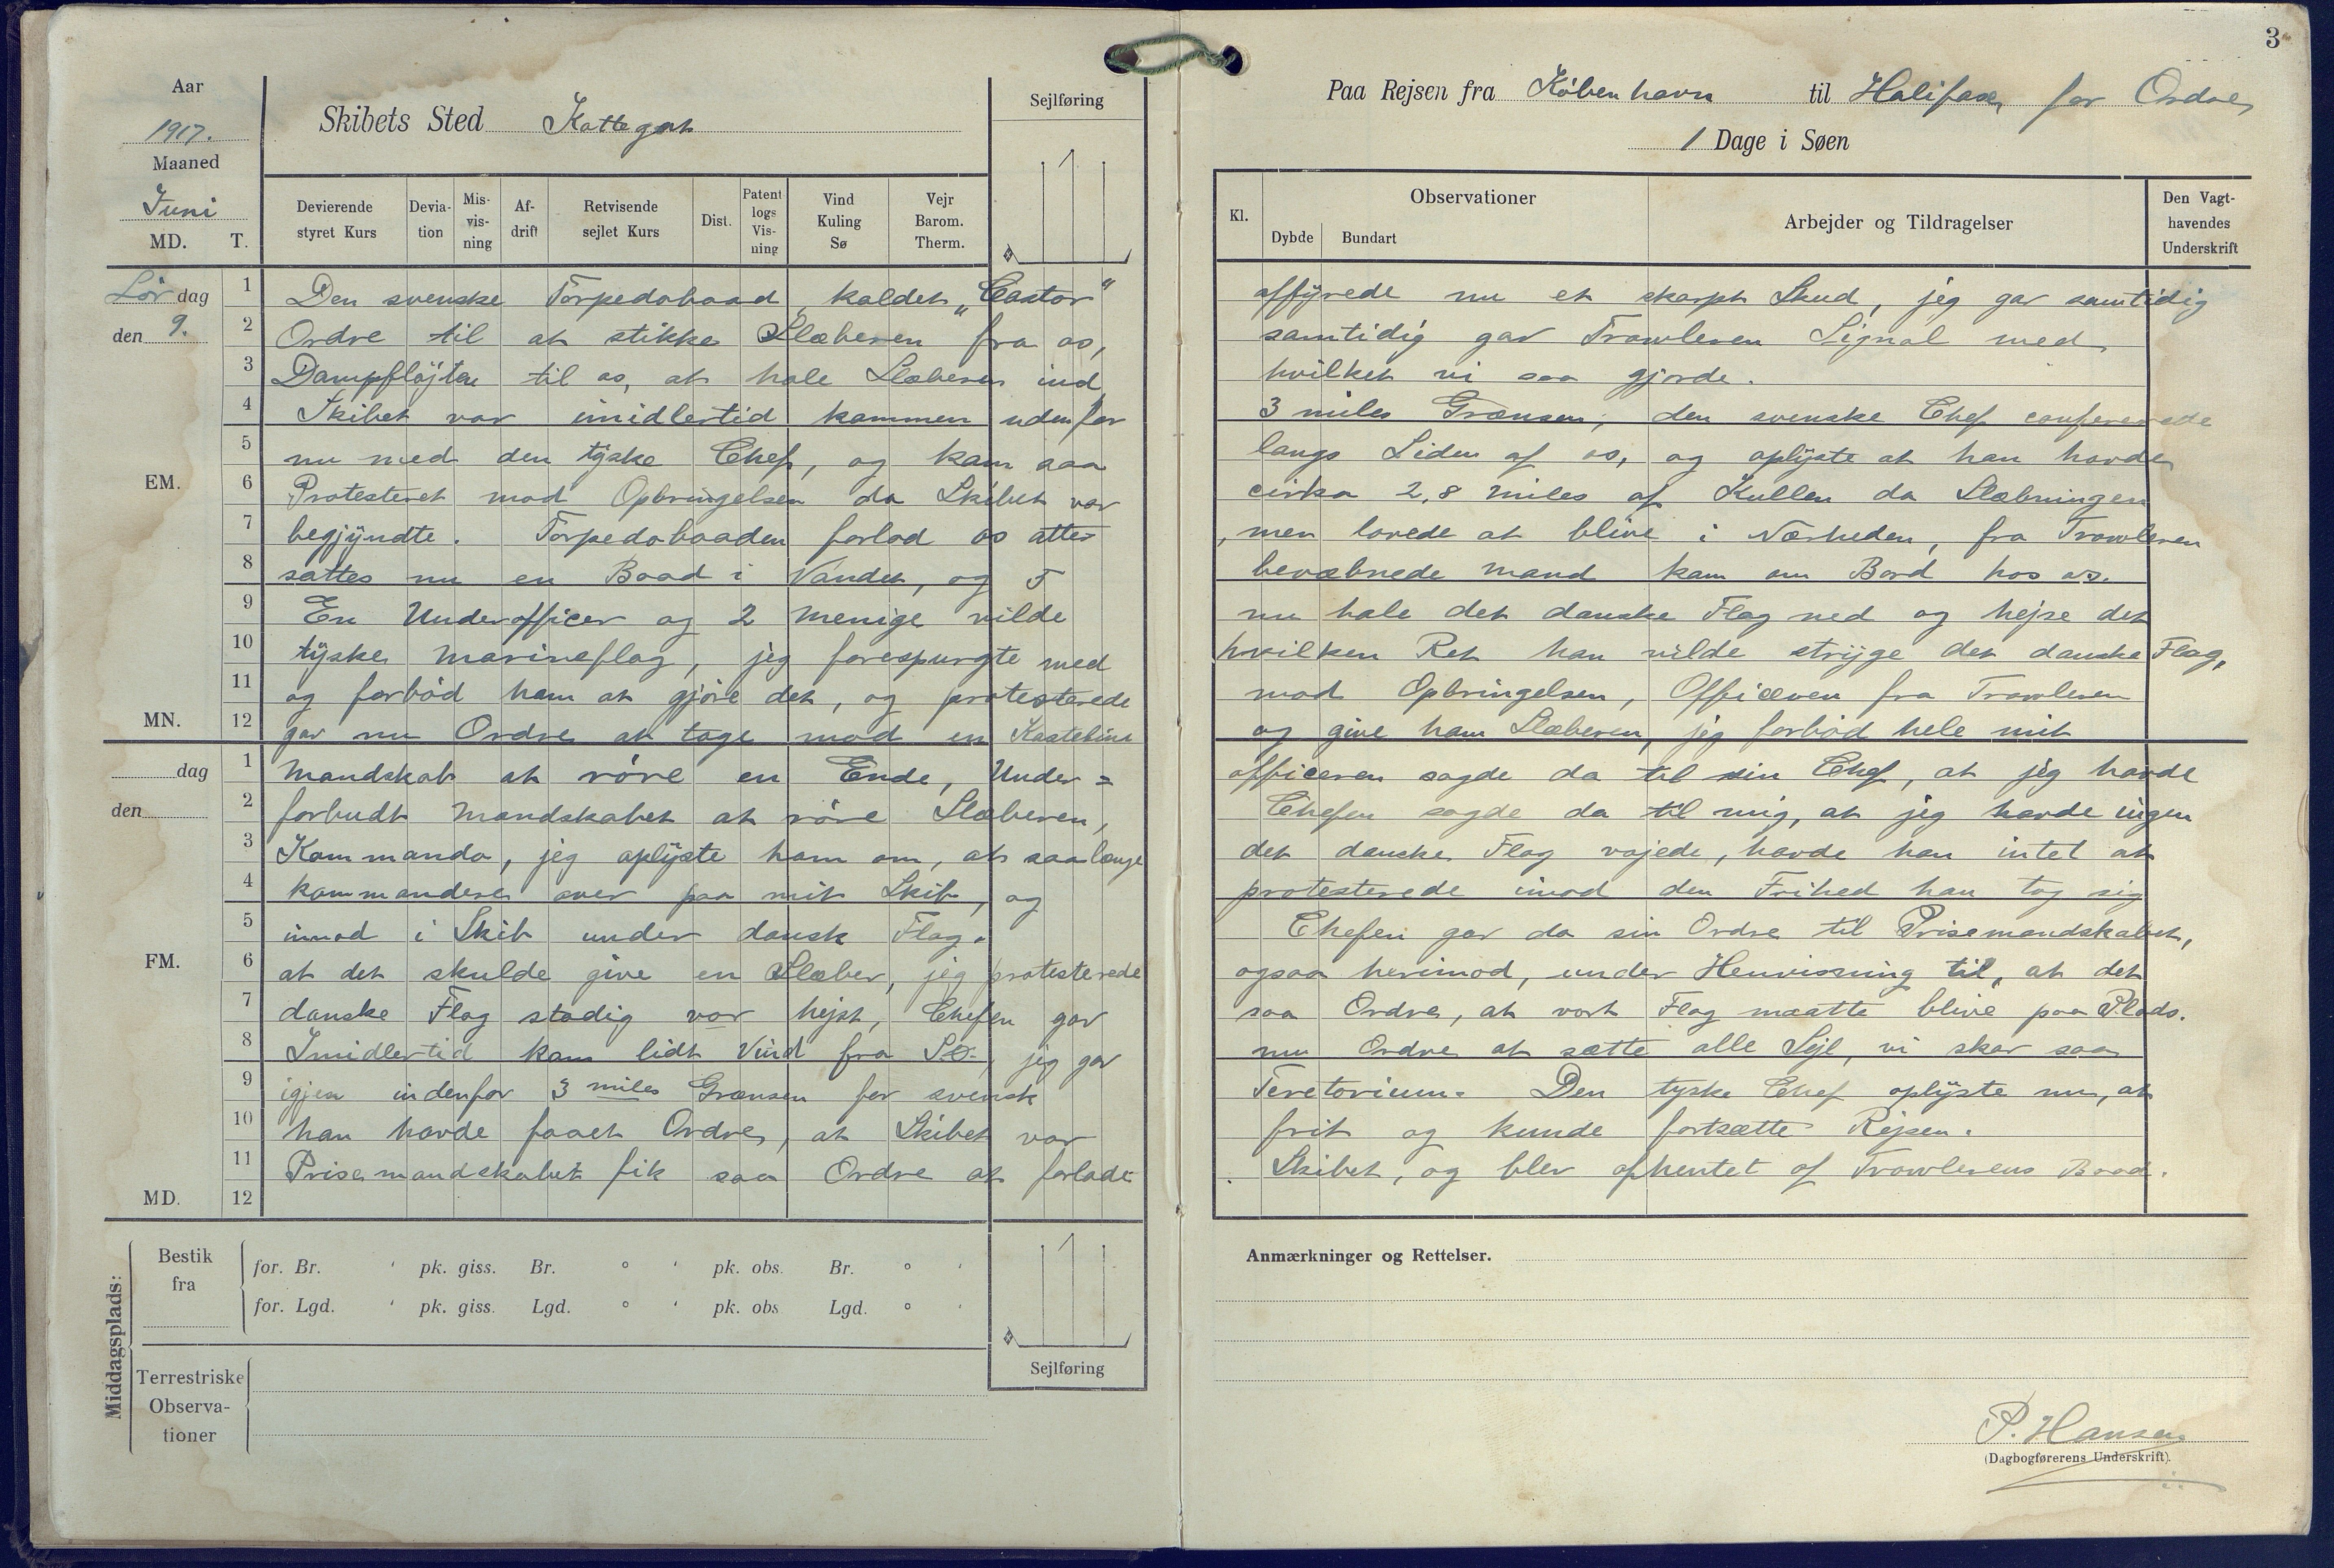 3
Aar
1917.
Maaned
Juni
MD. T.
Skibets Sted Kattegat
Sejlføring
Devierende styret Kurs
Deviation
Misvisning
Afdrift
Retvisende sejlet Kurs
Dist.
Patent logs Visning
Vind Kuling Sø
Vejr Barom. Therm.
Paa Rejsen fra København til Halifax for Ordre
1 Dage i Søen
Kl.
Observationer
Dybde Bundart
Arbejder og Tildragelser
Den Vagthavendes Underskrift
Lørdag 1 Den svenske Torpedobaad, kaldet „Castor“ affyrede nu et skarpt Skud, jeg gav samtidig
den 9. 2 Ordre til at stikke Slæberen fra os, samtidig gav Trawleren Signal med
3 Dampfløjten til os, at hale Slæberen ind hvilket vi saa gjorde.
4 Skibet var imidlertid kommen udenfor 3 miles Grænsen, den svenske Chef confererede
5 nu med den tyske Chef, og kam saa langs Siden af os, og oplyste at han havde
EM. 6 Protesteret mod Opbringelsen da Skibet var cirka 2,8 miles af Kullen da Slæbningen
7 begjyndte. Torpedobaaden forlod os atter, men lovede at blive i Nærheden, fra Trawleren
8 sattes nu en Baad i Vandet, og 5 bevæbnede Mand kam om Bord hos os.
9 En Underofficer og 2 Menige vilde nu hale det danske Flag ned og hejse det
10 tyske Marineflag, jeg forespurgte med hvilken Ret han vilde stryge det danske Flag,
11 og forbød ham at gjøre det, og protesterede mod Opbringelsen, Officeren fra Trawleren
MN. 12 gav nu Ordre at tage mod en Kasteline og give ham Slæberen, jeg forbød hele mit
dag 1 Mandskab at røre en Ende, Under= officeren sagde da til sin Chef, at jeg havde
den 2 forbudt Mandskabet at røre Slæberen, Chefen sagde da til mig, at jeg havde ingen
3 Kommando, jeg oplyste ham om, at saalænge det danske Flag vajede, havde han intet at
4 kommandere over paa mit Skib, og protesterede imod den Frihed han tog sig
5 imod i Skib under dansk Flag. Chefen gav da sin Ordre til Prisemandskabet,
FM. 6 at det skulde give en Slæber, jeg protesterede ogsaa herimod, under Henvisning til, at det
7 danske Flag stadig var hejst, Chefen gav saa Ordre, at vort Flag maatte blive paa Plads.
8 Imidlertid kam lidt Vind fra SO, jeg gav nu Ordre at sætte alle Sejl, vi skar saa
9 igjen indenfor 3 miles Grænsen for svensk Teretorium. Den tyske Chef oplyste nu, at
10 han havde faaet Ordre, at Skibet var frit og kunde fortsætte Rejsen.
11 Prisemandskabet fik saa Ordre at forlade Skibet, og blev afhentet af Trawlerens Baad.
MD. 12
Middagsplads:
Bestik fra
for. Br. ' pk. giss. Br. ° ' pk. obs. Br. ° '
for. Lgd. ' pk. giss. Lgd. ° ' pk. obs Lgd. ° '
Terrestriske Observationer
Sejlføring
Anmærkninger og Rettelser.
P. Hansen
(Dagbogførerens Underskrift).